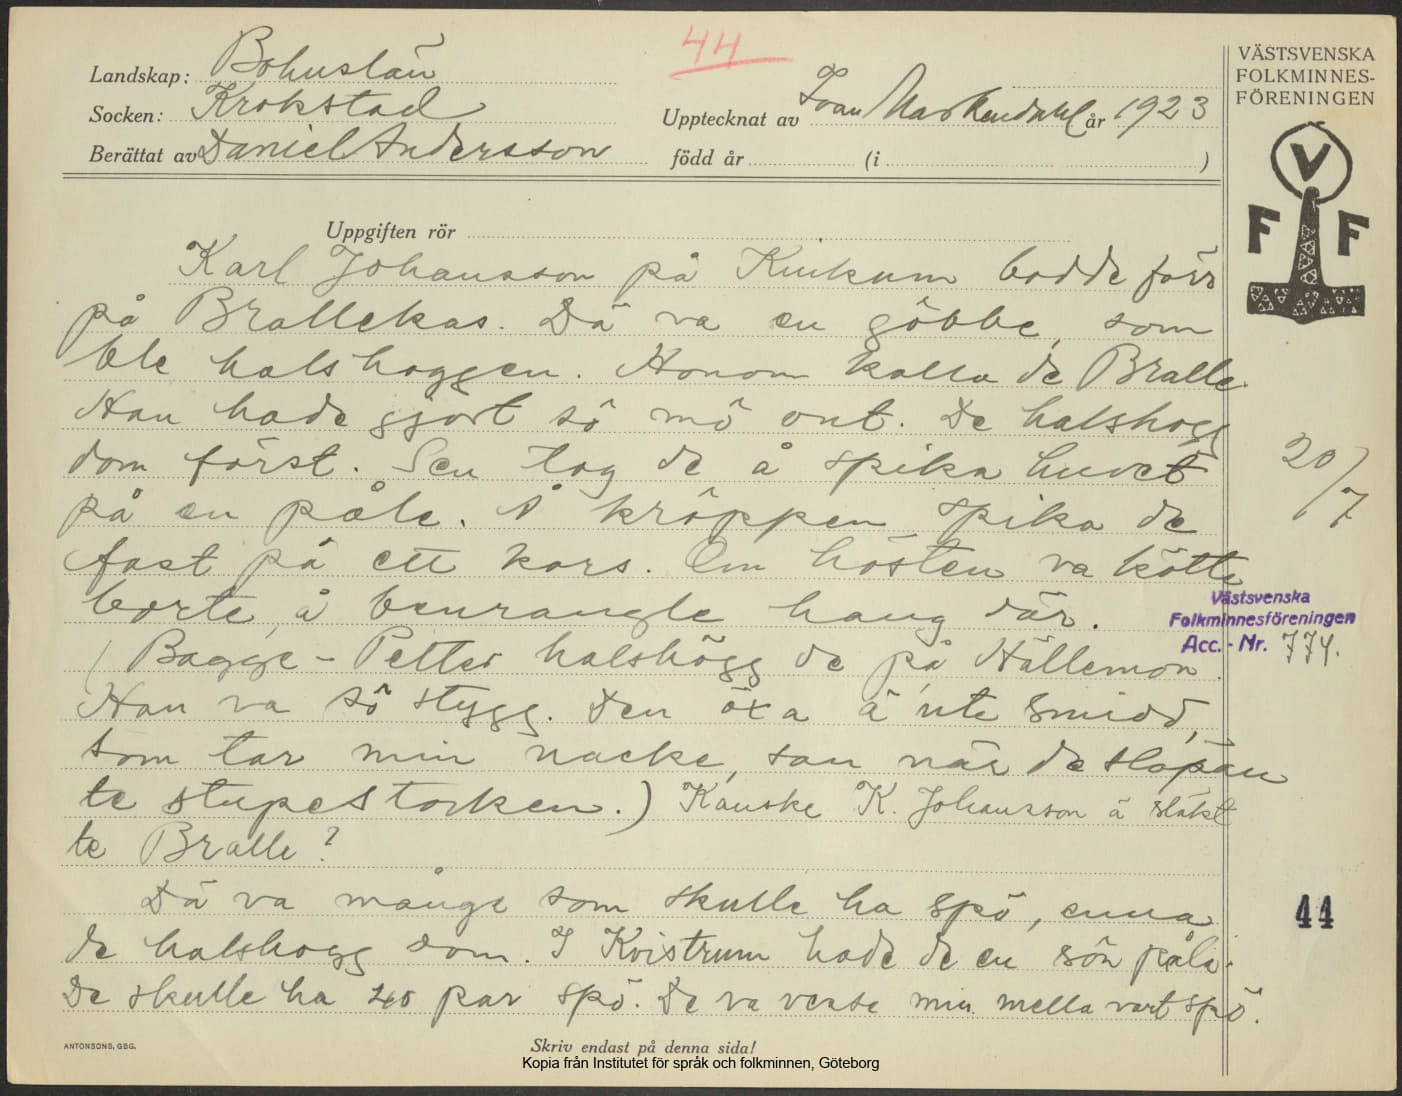 44
Landskap: Bohuslän
Socken: Krokstad
Upptecknat av Ivan Markendahl år 1923
Berättat av Daniel Andersson född år (i )
VÄSTSVENSKA
FOLKMINNES-
FÖRENINGEN
V
F F
Uppgiften rör
Karl Johansson på Kinkum bodde förr
på Brallekas. Dä va en göbbe, som
ble halshoggen. Honom kalla de Bralle.
Han hade gjort sô mô ont. De halshogg
dom först. Sen tog de å spika huvet
på en påle. Å krôppen spika de
fast på ett kors. Om hösten va kötte
borte, å benrangle hang där.
(Bagge-Petter halshôgg de på Hällemon.
Han va sô stygg. Den öxa ä 'nte smidd,
som tar min nacke, san när de släpan
te stupestocken.) Kanske K. Johansson ä släkt
te Bralle?
Dä va månge som skulle ha spö, enna
de halshogg dom. I Kvistrum hade de en sôn påle.
De skulle ha 40 par spö. De va visse min. mella vart spö.
20/7
Västsvenska
Folkminnesföreningen
Acc. - Nr. 774.
44
ANTONSONS, GBG.
Skriv endast på denna sida!
Kopia från Institutet för språk och folkminnen, Göteborg